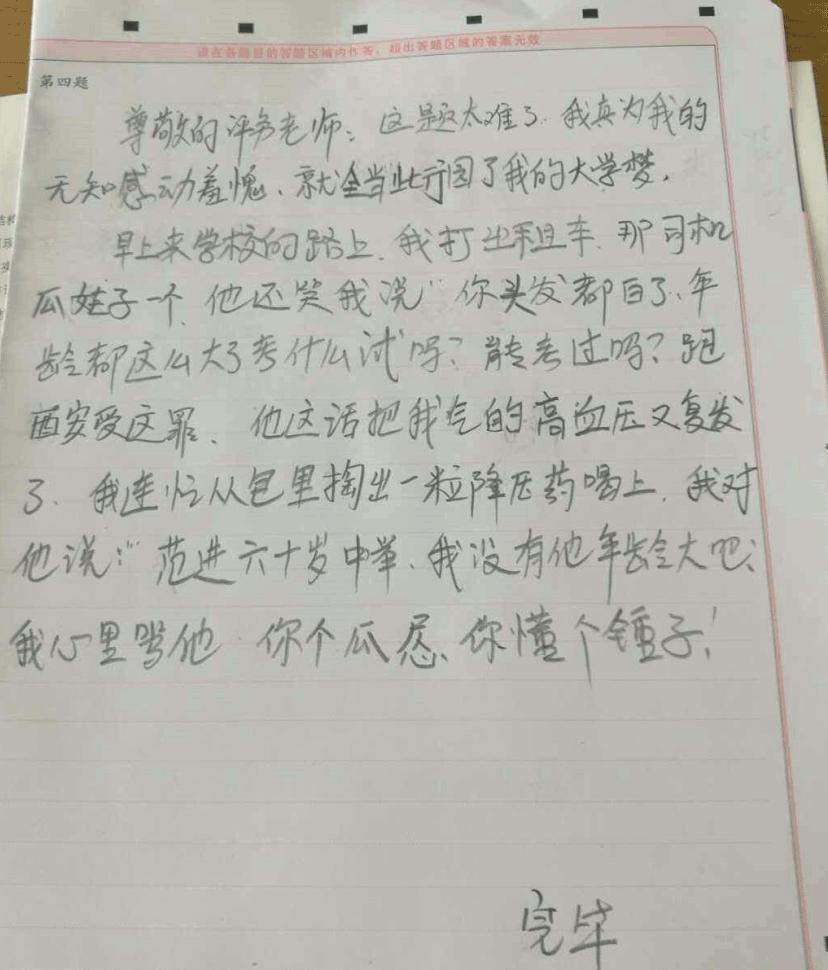 请在各题目的答题区域内作答,超出答题区域的答案无效
第四题
尊敬的评卷老师:这题太难了.我真为我的
无知感动羞愧、就全当此行圆了我的大学梦.
早上来学校的路上.我打出租车.那司机
瓜娃子一个.他还笑我说"你头发都白了、年
龄都这么大了考什么试吗?能考过吗?跑
西安受这罪、他这话把我气的高血压又复发
了.我连忙从包里掏出一粒降压药喝上.我对
他说:"范进六十岁中举、我没有他年龄大吧;
我心里骂他 你个瓜怂、你懂个锤子!
完毕